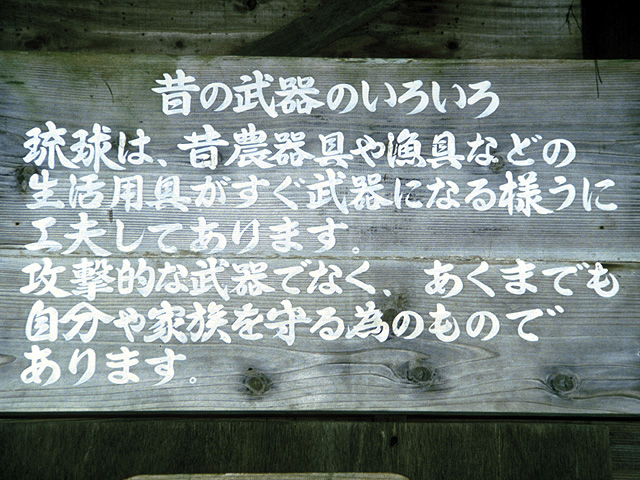 昔の武器のいろいろ
琉球は、昔農器具や漁具などの
生活用具がすぐ武器になる様うに
工夫してあります。
攻撃的な武器でなく、あくまでも
自分や家族を守る為のもので
あります。